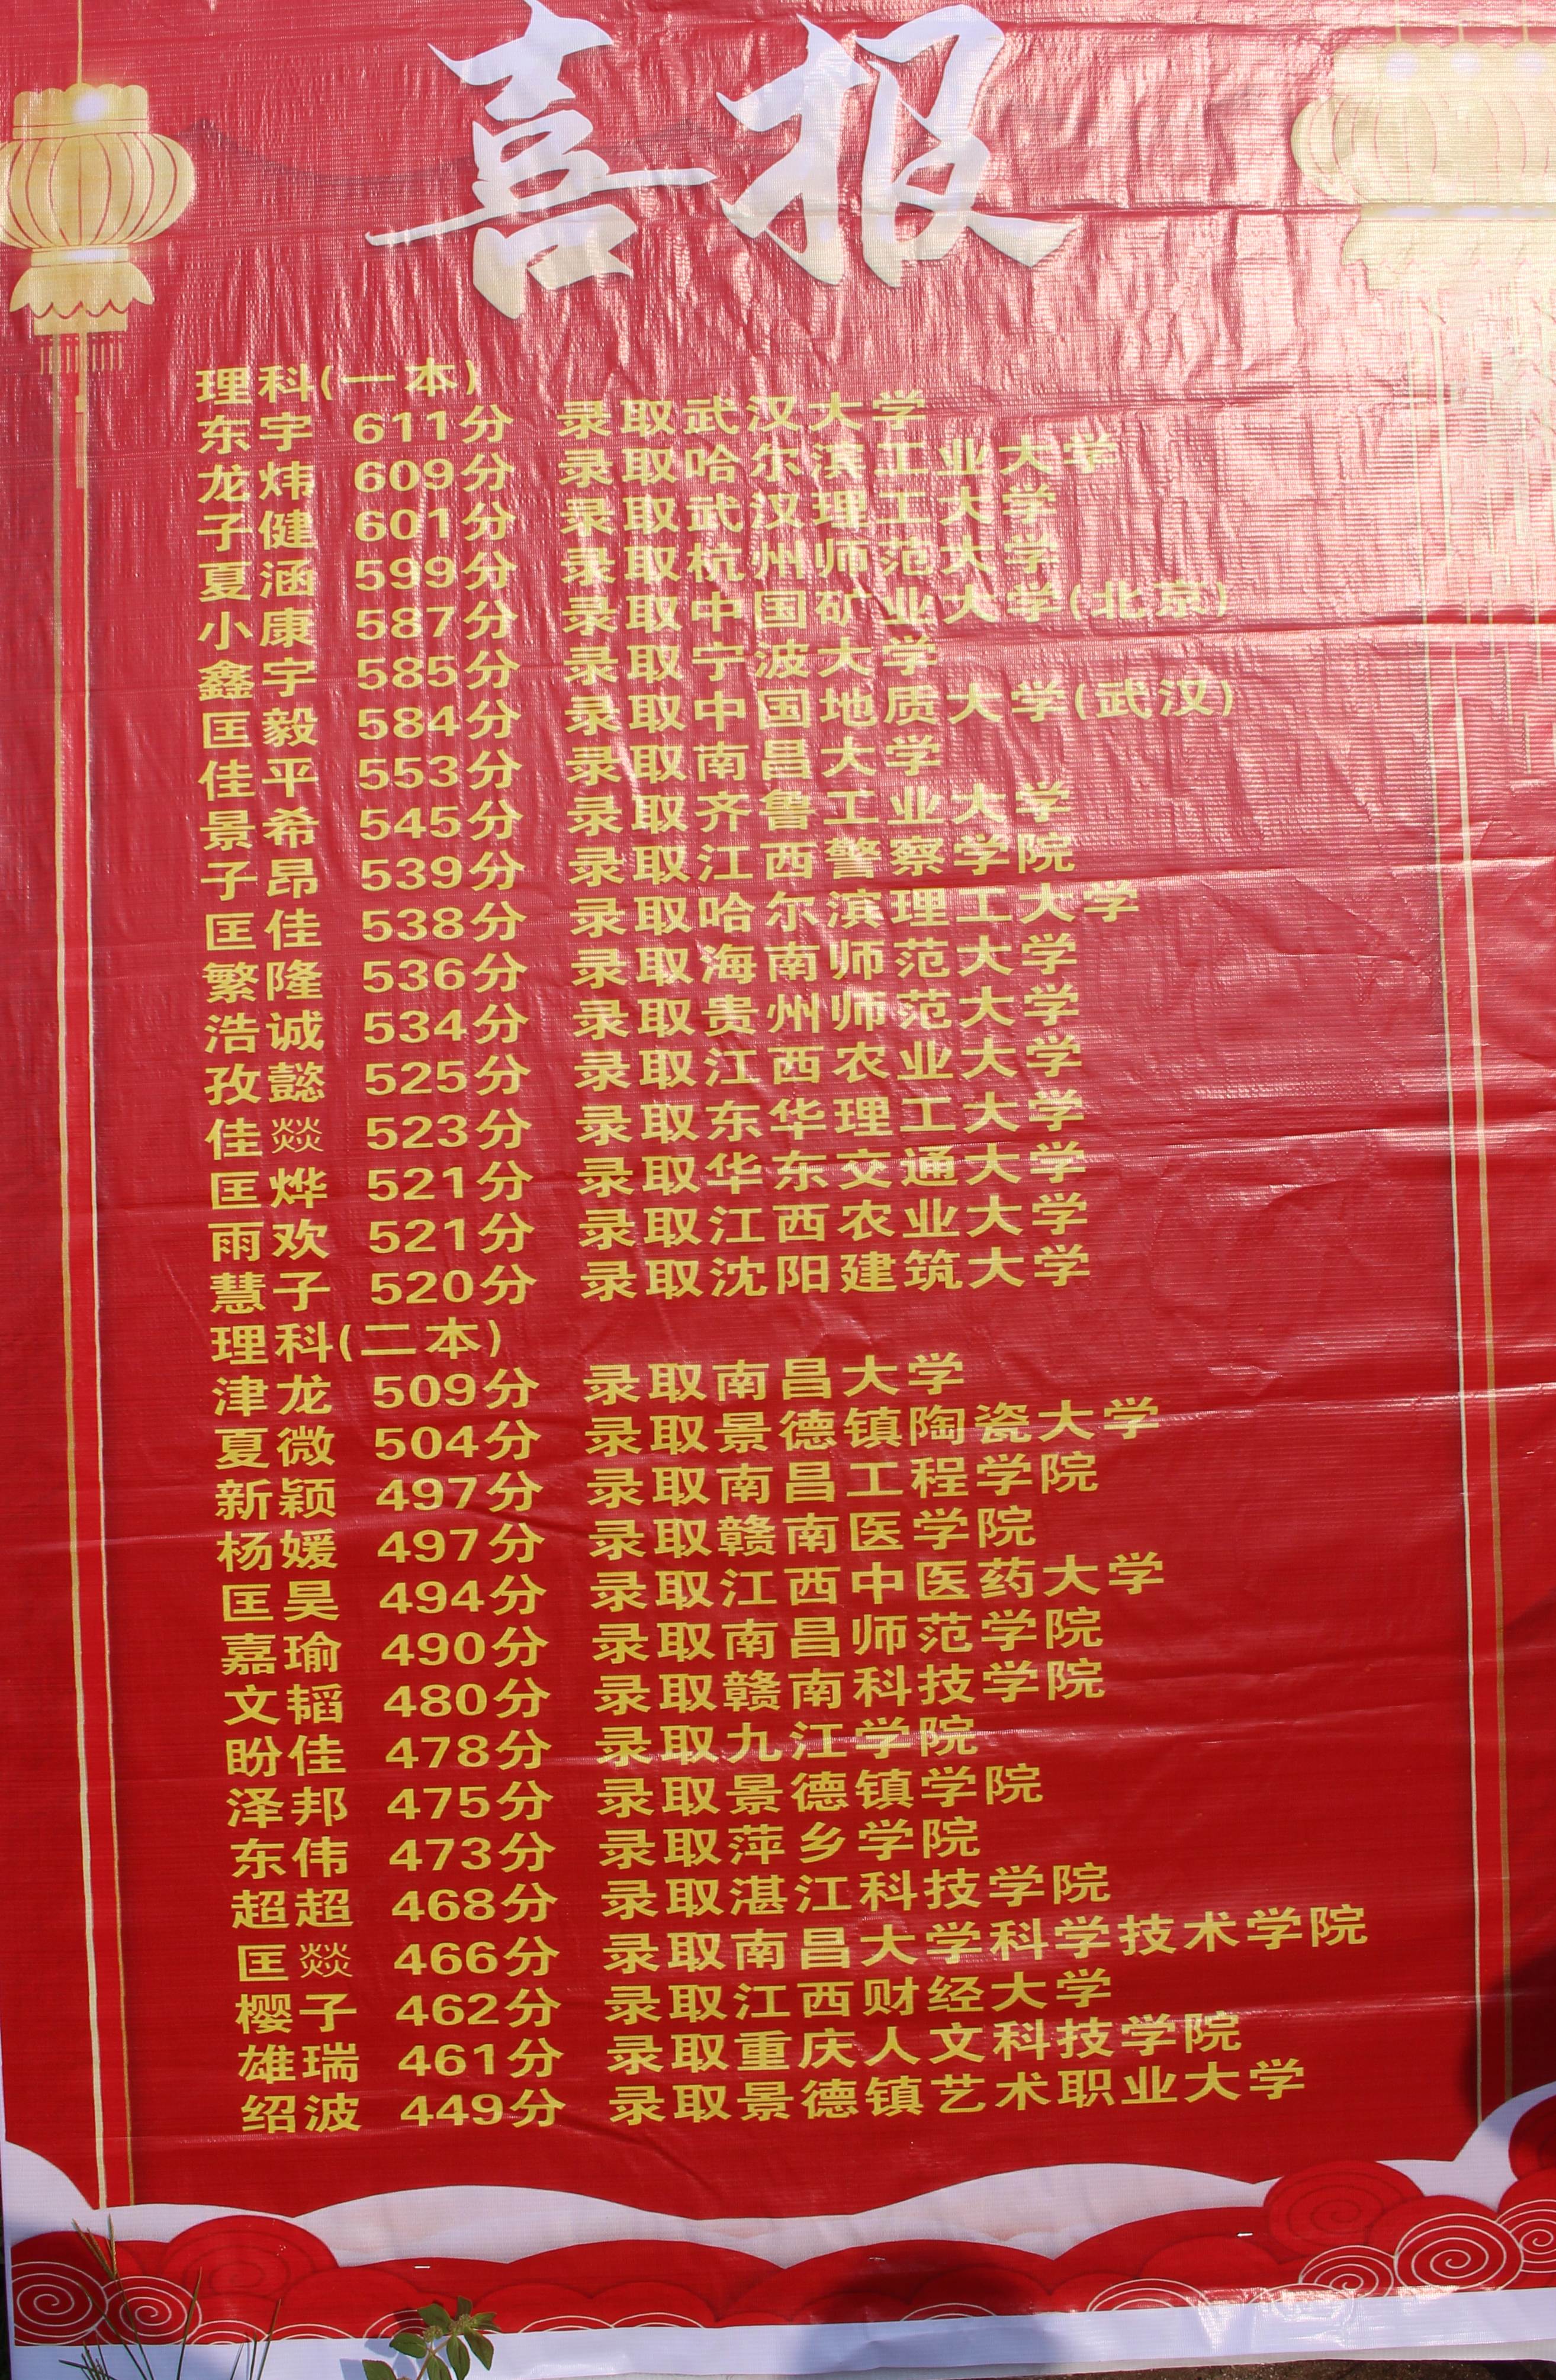 喜报
理科(一本)
东宇 611分 录取武汉大学
龙炜 609分 录取哈尔滨工业大学
子健 601分 录取武汉理工大学
夏涵 599分 录取杭州师范大学
小康 587分 录取中国矿业大学(北京)
鑫宇 585分 录取宁波大学
匡毅 584分 录取中国地质大学(武汉)
佳平 553分 录取南昌大学
景希 545分 录取齐鲁工业大学
子昂 539分 录取江西警察学院
匡佳 538分 录取哈尔滨理工大学
繁隆 536分 录取海南师范大学
浩诚 534分 录取贵州师范大学
孜懿 525分 录取江西农业大学
佳燚 523分 录取东华理工大学
匡烨 521分 录取华东交通大学
雨欢 521分 录取江西农业大学
慧子 520分 录取沈阳建筑大学
理科(二本)
津龙 509分 录取南昌大学
夏微 504分 录取景德镇陶瓷大学
新颖 497分 录取南昌工程学院
杨媛 497分 录取赣南医学院
匡昊 494分 录取江西中医药大学
嘉瑜 490分 录取南昌师范学院
文韬 480分 录取赣南科技学院
盼佳 478分 录取九江学院
泽邦 475分 录取景德镇学院
东伟 473分 录取萍乡学院
超超 468分 录取湛江科技学院
匡燚 466分 录取南昌大学科学技术学院
樱子 462分 录取江西财经大学
雄瑞 461分 录取重庆人文科技学院
绍波 449分 录取景德镇艺术职业大学